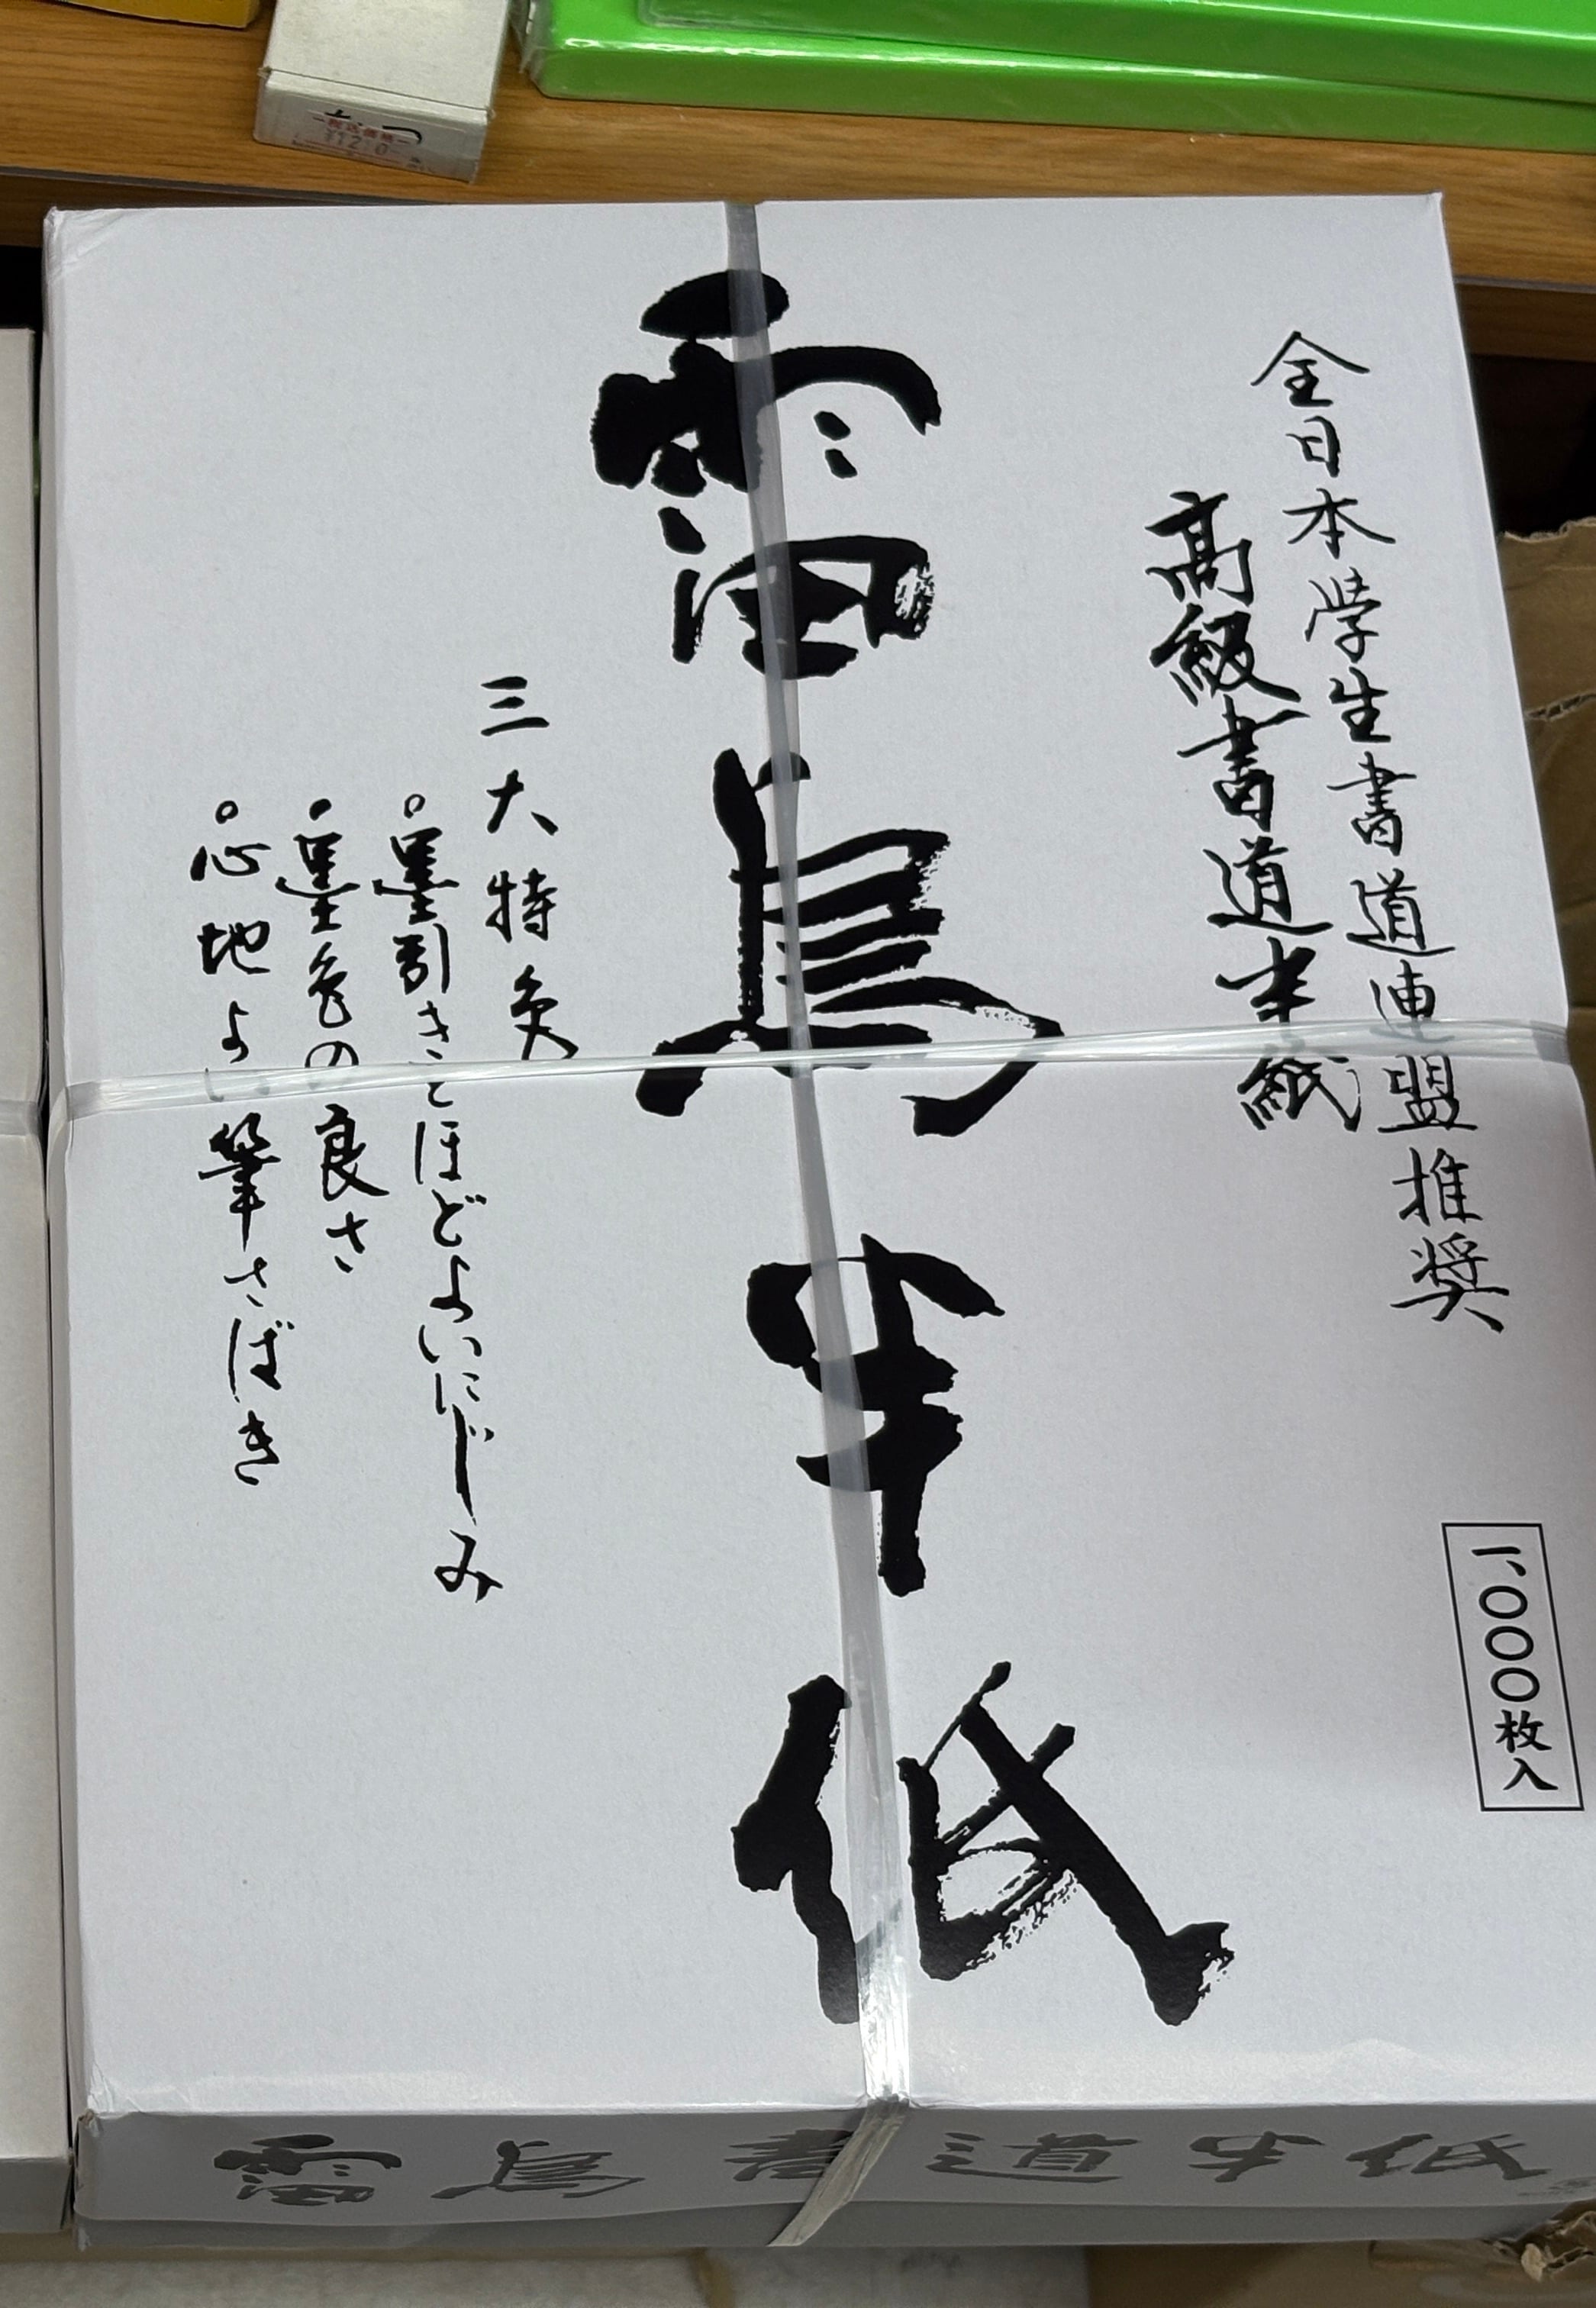 全日本学生書道連盟推奨
高級書道半紙
一、〇〇〇枚入
雷鳥半紙
三大特色
○墨引きとほどよいにじみ
●墨色の良さ
○心地よい筆さばき
雷鳥書道半紙